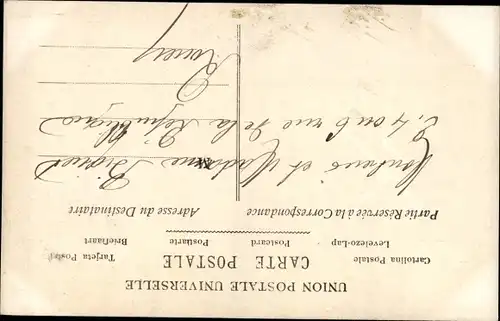 UNION POSTALE UNIVERSELLE
CARTE POSTALE
Cartolina Postale Levelezo-Lap Postcard Postkarte Briefkaart Tarjeta Postal
Partie Réservée à la Correspondance
Adresse du Destinataire
Monsieur et Madame
2, 4 ou 6 rue de la République